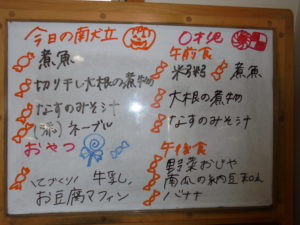 今日の献立
煮魚
切り干し大根の煮物
なすのみそ汁
ネーブル
おやつ
てづくり 牛乳
お豆腐マフィン
0才児
午前食
煮魚
大根の煮物
なすのみそ汁
午後食
野菜おじや
南瓜の納豆和え
バナナ